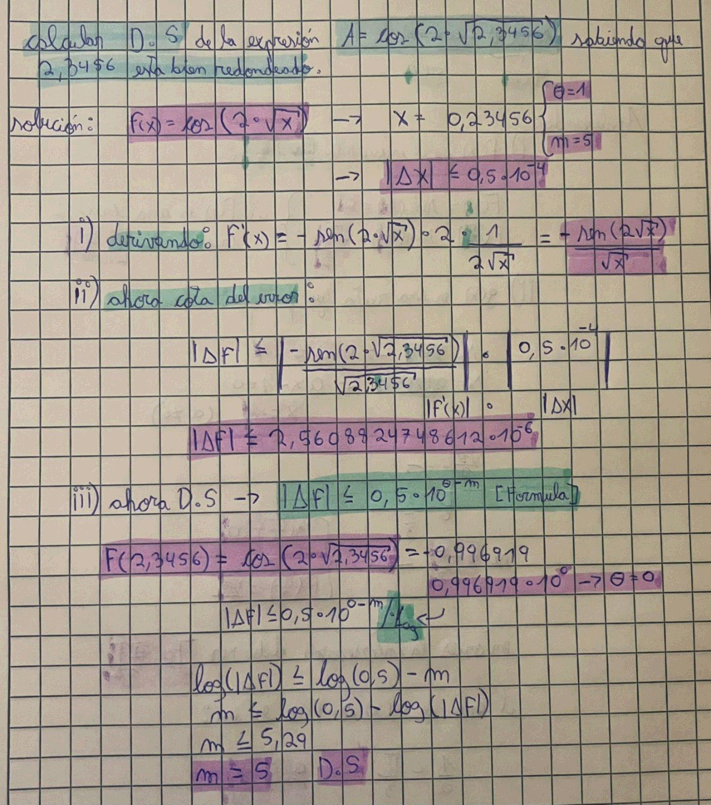 calcular D.S de la expresión A = cos(2·√2,3456) sabiendo que
2,3456 esta bien redondeado.
solución: F(x) = cos(2·√x) → x = 0,23456 { θ=1
m=5
→ |Δx| ≤ 0,5·10⁻⁴
i) derivando: F'(x) = -sen(2·√x)·2·1/(2√x) = -sen(2√x)/√x
ii) ahora cota del error:
|ΔF| ≤ |-sen(2·√2,3456)/√2,3456| · |0,5·10⁻⁴|
|F'(x)| · |Δx|
|ΔF| ≤ 2,5608824748612·10⁻⁶
iii) ahora D.S → |ΔF| ≤ 0,5·10^(θ-m) [Formula]
F(2,3456) = cos(2·√2,3456) = -0,996919
0,996919·10⁰ → θ=0
|ΔF| ≤ 0,5·10^(0-m) /·log
log(|ΔF|) ≤ log(0,5) - m
m ≤ log(0,5) - log(|ΔF|)
m ≤ 5,29
m = 5 D.S